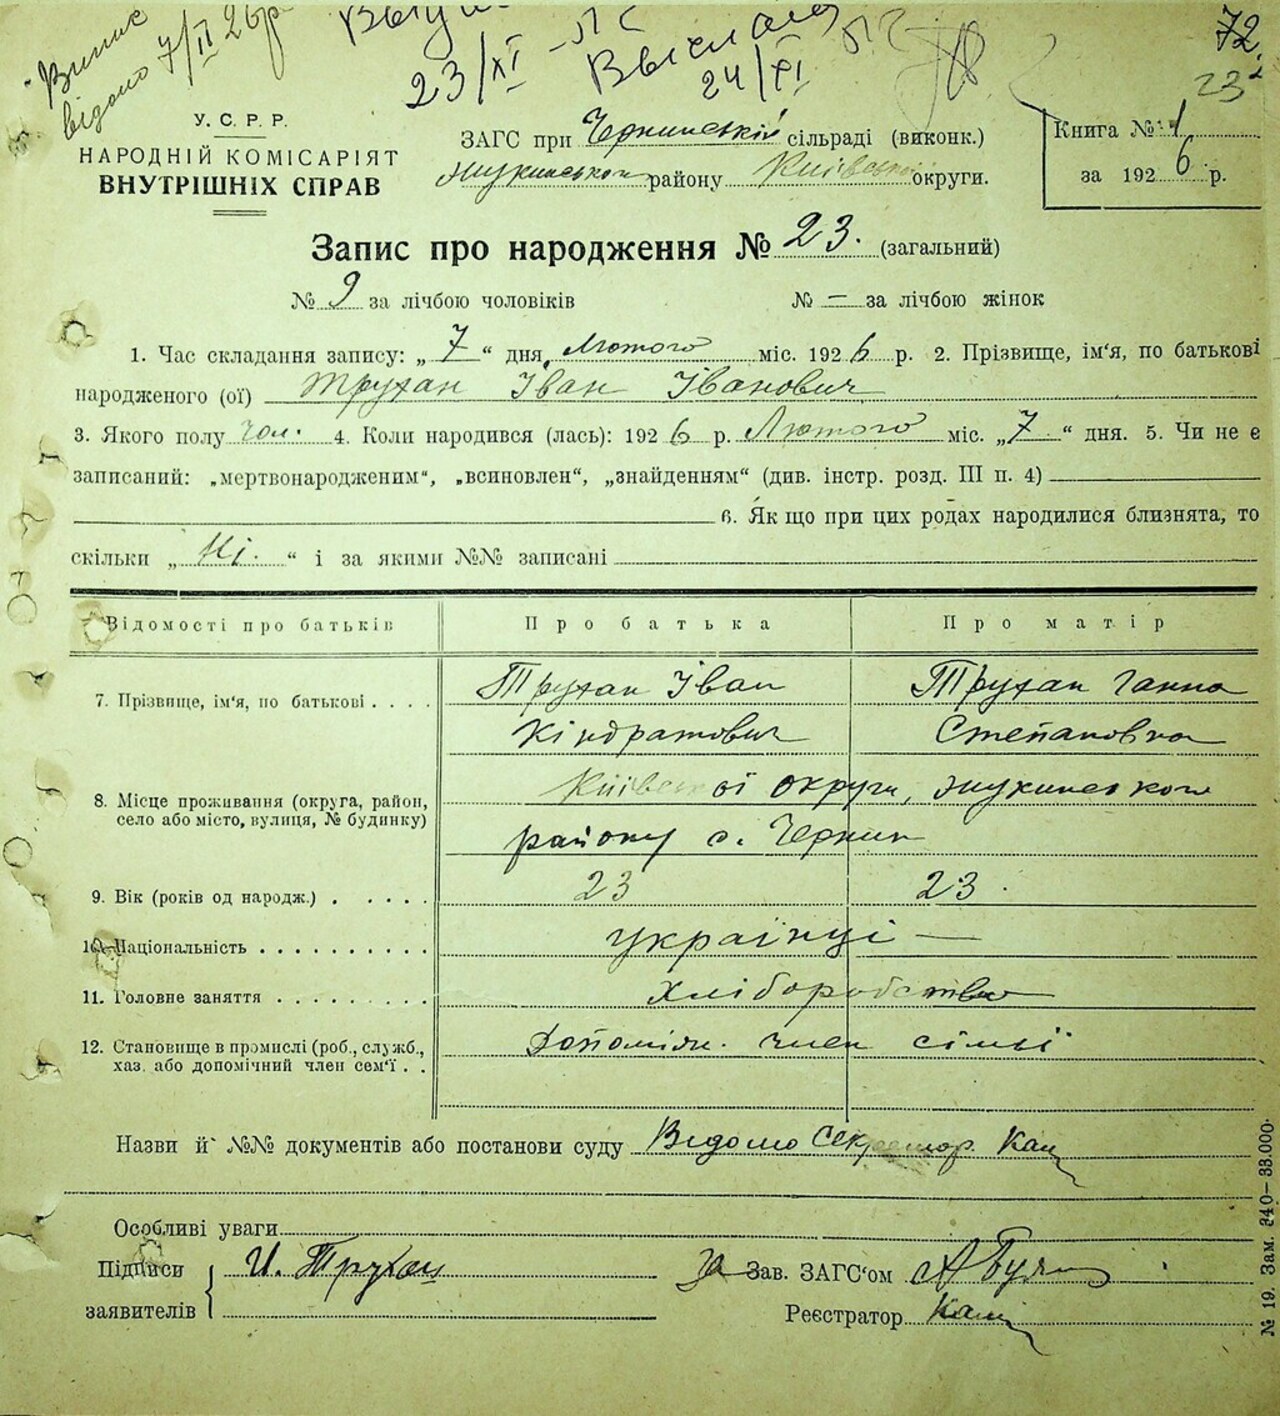 Випис
видано 7/II 26 р
23/XI
Выслана
24/XI
72
23
У. С. Р. Р.
НАРОДНІЙ КОМІСАРІЯТ
ВНУТРІШНІХ СПРАВ
ЗАГС при Чернинській сільраді (виконк.)
Жукинського району Київської округи.
Книга № 1
за 1926 р.
Запис про народження № 23. (загальний)
№ 9 за лічбою чоловіків № — за лічбою жінок
1. Час складання запису: „ 7 “ дня Лютого міс. 1926 р. 2. Прізвище, ім'я, по батькові
народженого (ої) Трухан Іван Іванович
3. Якого полу чол. 4. Коли народився (лась): 1926 р. Лютого міс. „ 7 “ дня. 5. Чи не є
записаний: „мертвонародженим“, „всиновлен“, „знайденням“ (див. інстр. розд. III п. 4)
6. Як що при цих родах народилися близнята, то
скільки „ Ні. “ і за якими №№ записані
Відомості про батьків Про батька Про матір
7. Прізвище, ім'я, по батькові . . . . Трухан Іван Трухан Ганна
Кіндратович Степановна
8. Місце проживання (округа, район, Київської округи, Жукинського
село або місто, вулиця, № будинку) району с. Чернин
9. Вік (років од народж.) . . . . . 23 23.
10. Національність . . . . . . . . . . українці —
11. Головне заняття . . . . . . . . . Хліборобство
12. Становище в промислі (роб., служб., Допоміжн. член сімьї
хаз. або допомічний член сем'ї . .
Назви й №№ документів або постанови суду Відомо Секретар.
Особливі уваги
Підписи И. Трухан За Зав. ЗАГС'ом
заявителів Реєстратор
№ 19. Зам. 340—33.000.